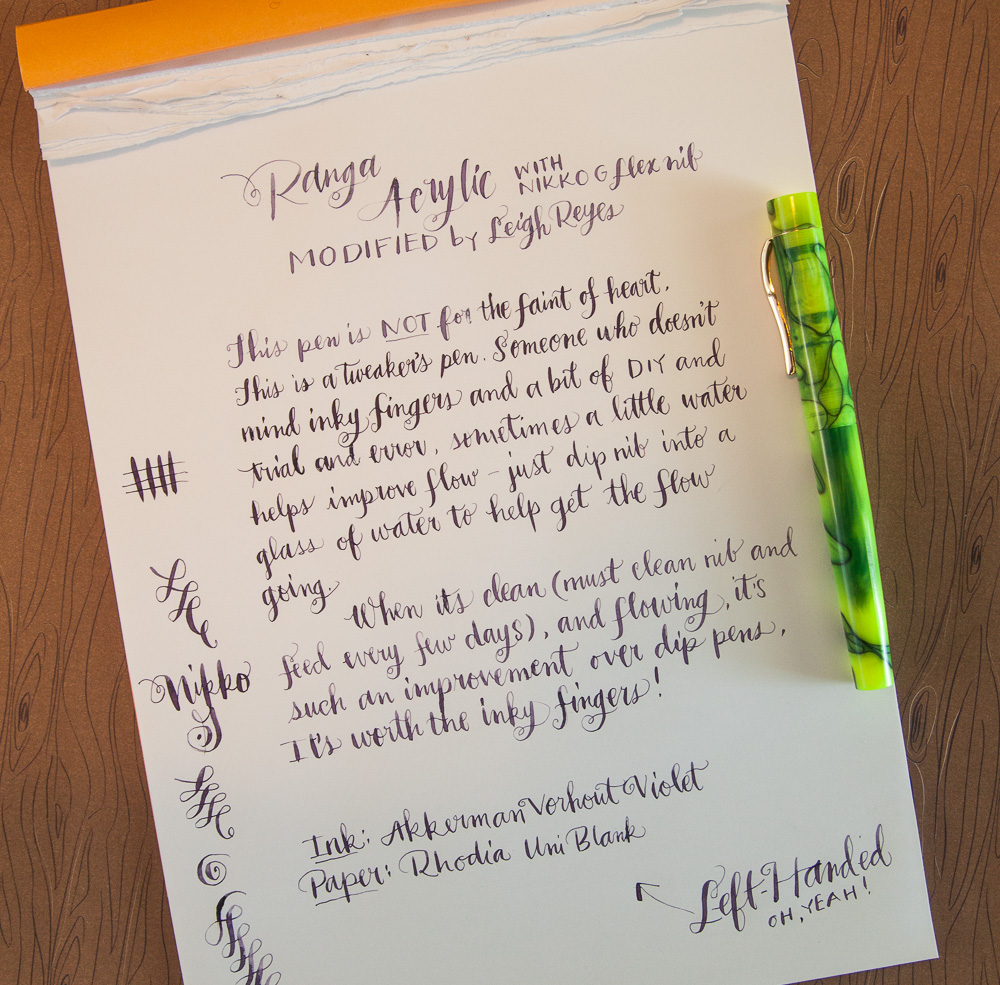 Ranga
Acrylic WITH NIKKO G flex nib
MODIFIED by Leigh Reyes
This pen is NOT for the faint of heart.
This is a tweaker's pen. Someone who doesn't
mind inky fingers and a bit of DIY and
trial and error, sometimes a little water
helps improve flow – just dip nib into a
glass of water to help get the flow
going.
When it's clean (must clean nib and
feed every few days), and flowing, it's
such an improvement over dip pens,
It's worth the inky fingers!
Nikko
G
Ink: Akkerman Vorhout Violet
Paper: Rhodia Uni Blank
Left-Handed
OH, YEAH!